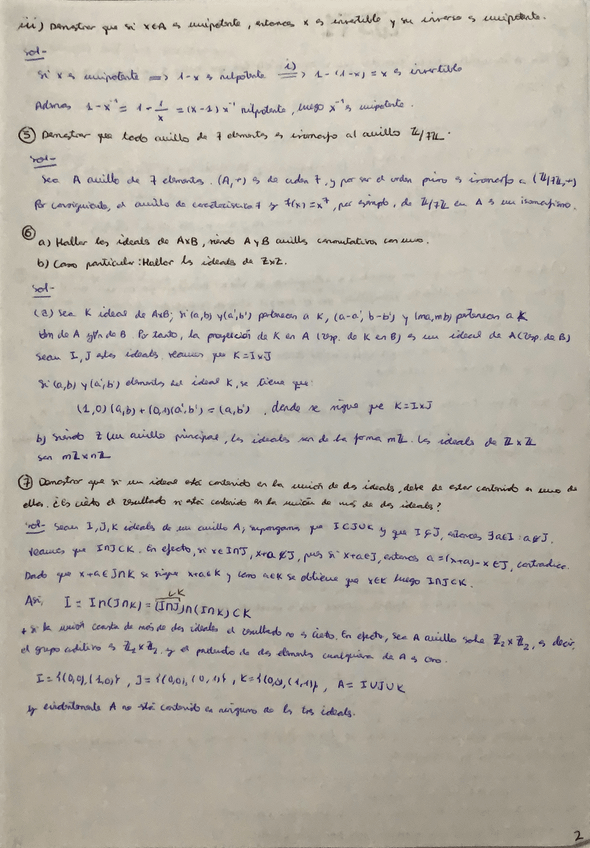 iii) Demostrar que si x∈A es unipotente, entonces x es invertible y su inverso es unipotente.
sol-
Si x es unipotente ⟹ 1-x es nilpotente ⟹ i) 1-(1-x) = x es invertible
Además 1-x⁻¹ = 1 - 1/x = (x-1)x⁻¹ nilpotente, luego x⁻¹ es unipotente.
⑤ Demostrar que todo anillo de 7 elementos es isomorfo al anillo ℤ/7ℤ.
sol-
Sea A anillo de 7 elementos. (A,+) es de orden 7, y por ser el orden primo es isomorfo a (ℤ/7ℤ,+)
Por consiguiente, el anillo de característica 7 y f(x)=x⁷, por ejemplo, de ℤ/7ℤ en A es un isomorfismo.
⑥
a) Hallar los ideales de AxB, siendo A y B anillos conmutativos con uno.
b) Caso particular: Hallar los ideales de ZxZ.
sol-
(a) Sea K ideal de AxB; si (a,b) y (a',b') pertenecen a K, (a-a', b-b') y (ma,nb) pertenecen a K
de A y n de B Por tanto, la proyección de K en A (resp. de K en B) es un ideal de A (resp. de B)
sean I, J estos ideales. veamos que K=IxJ
Si (a,b) y (a',b') elementos del ideal K, se tiene que:
(1,0)(a,b)+(0,1)(a',b') = (a,b'), donde se sigue que K=IxJ
b) Siendo Z un anillo principal, los ideales son de la forma mℤ. Los ideales de ℤxℤ
son mℤxnℤ
⑦ Demostrar que si un ideal está contenido en la unión de dos ideales, debe de estar contenido en uno de
ellos. ¿Es cierto el resultado si está contenido en la unión de más de dos ideales?
sol- Sean I, J, K ideales de un anillo A, supongamos que I⊂J∪K y que I⊄J, entonces ∃a∈I : a∉J.
veamos que I∩J⊂K. En efecto, si x∈I∩J, x+a∉J, pues si x+a∈J, entonces a=(x+a)-x∈J, contradicc.
Dado que x+a∈J∩K se sigue x+a∈K y como a∈K se obtiene que x∈K luego I∩J⊂K.
Así, I = I∩(J∩K) = (I∩J)∩(I∩K)⊂K
⊂K
+ si la unión consta de más de dos ideales el resultado no es cierto. En efecto, sea A anillo sobre ℤ₂xℤ₂, es decir,
el grupo aditivo es ℤ₂xℤ₂ y el producto de dos elementos cualquiera de A es cero.
I={(0,0),(1,0)}, J={(0,0),(0,1)}, K={(0,0),(1,1)}, A=I∪J∪K
y evidentemente A no está contenido en ninguno de los tres ideales.
2